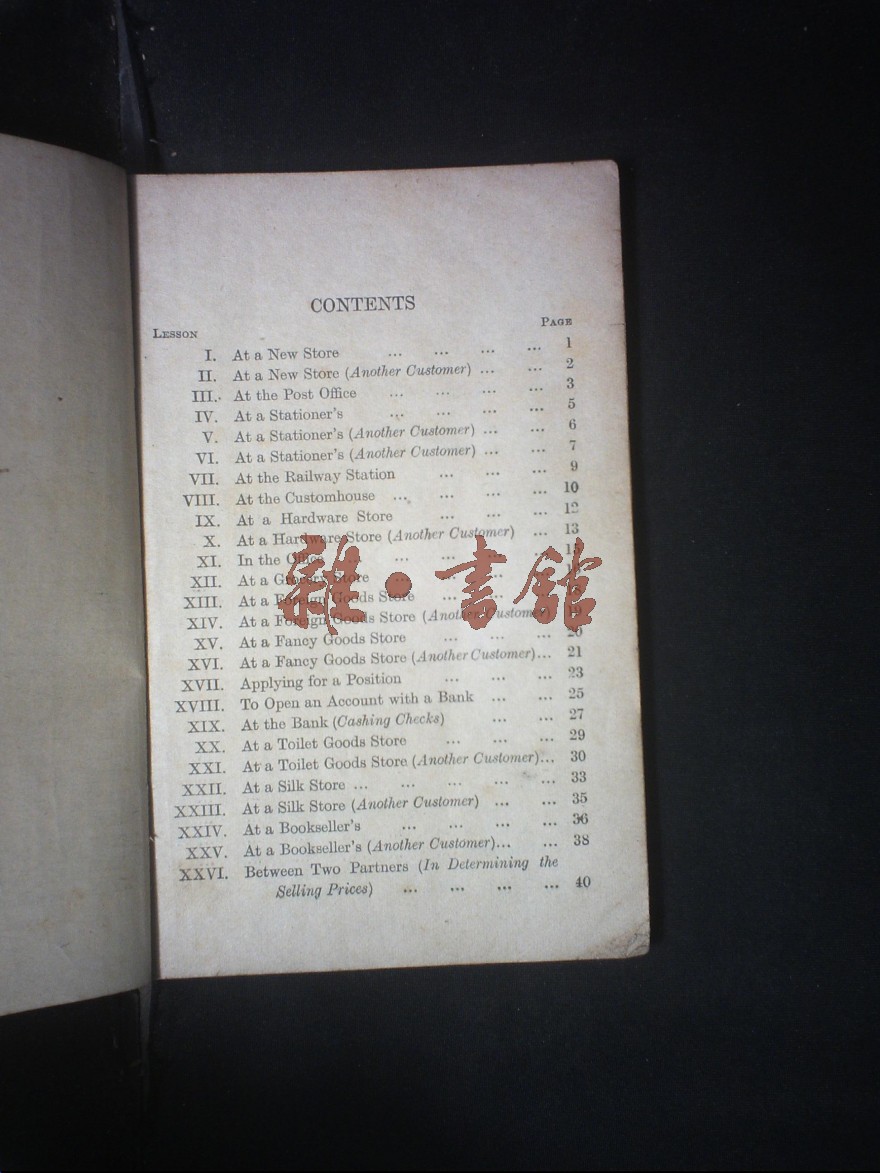 CONTENTS
LESSON PAGE
I. At a New Store ... ... ... ... 1
II. At a New Store (Another Customer) ... ... 2
III. At the Post Office ... ... ... ... 3
IV. At a Stationer's ... ... ... ... 5
V. At a Stationer's (Another Customer) ... ... 6
VI. At a Stationer's (Another Customer) ... ... 7
VII. At the Railway Station ... ... ... 9
VIII. At the Customhouse ... ... ... ... 10
IX. At a Hardware Store ... ... ... 12
X. At a Hardware Store (Another Customer) ... 13
XI. In the Office ... ... ... ... ... 15
XII. At a Grocery Store ... ...
XIII. At a Foreign Goods Store ... ... 18
XIV. At a Foreign Goods Store (Another Customer) 19
XV. At a Fancy Goods Store ... ... ... 20
XVI. At a Fancy Goods Store (Another Customer)... 21
XVII. Applying for a Position ... ... ... 23
XVIII. To Open an Account with a Bank ... ... 25
XIX. At the Bank (Cashing Checks) ... ... 27
XX. At a Toilet Goods Store ... ... ... 29
XXI. At a Toilet Goods Store (Another Customer)... 30
XXII. At a Silk Store ... ... ... ... ... 33
XXIII. At a Silk Store (Another Customer) ... ... 35
XXIV. At a Bookseller's ... ... ... ... 36
XXV. At a Bookseller's (Another Customer)... ... 38
XXVI. Between Two Partners (In Determining the
Selling Prices) ... ... ... ... 40
雜・書館